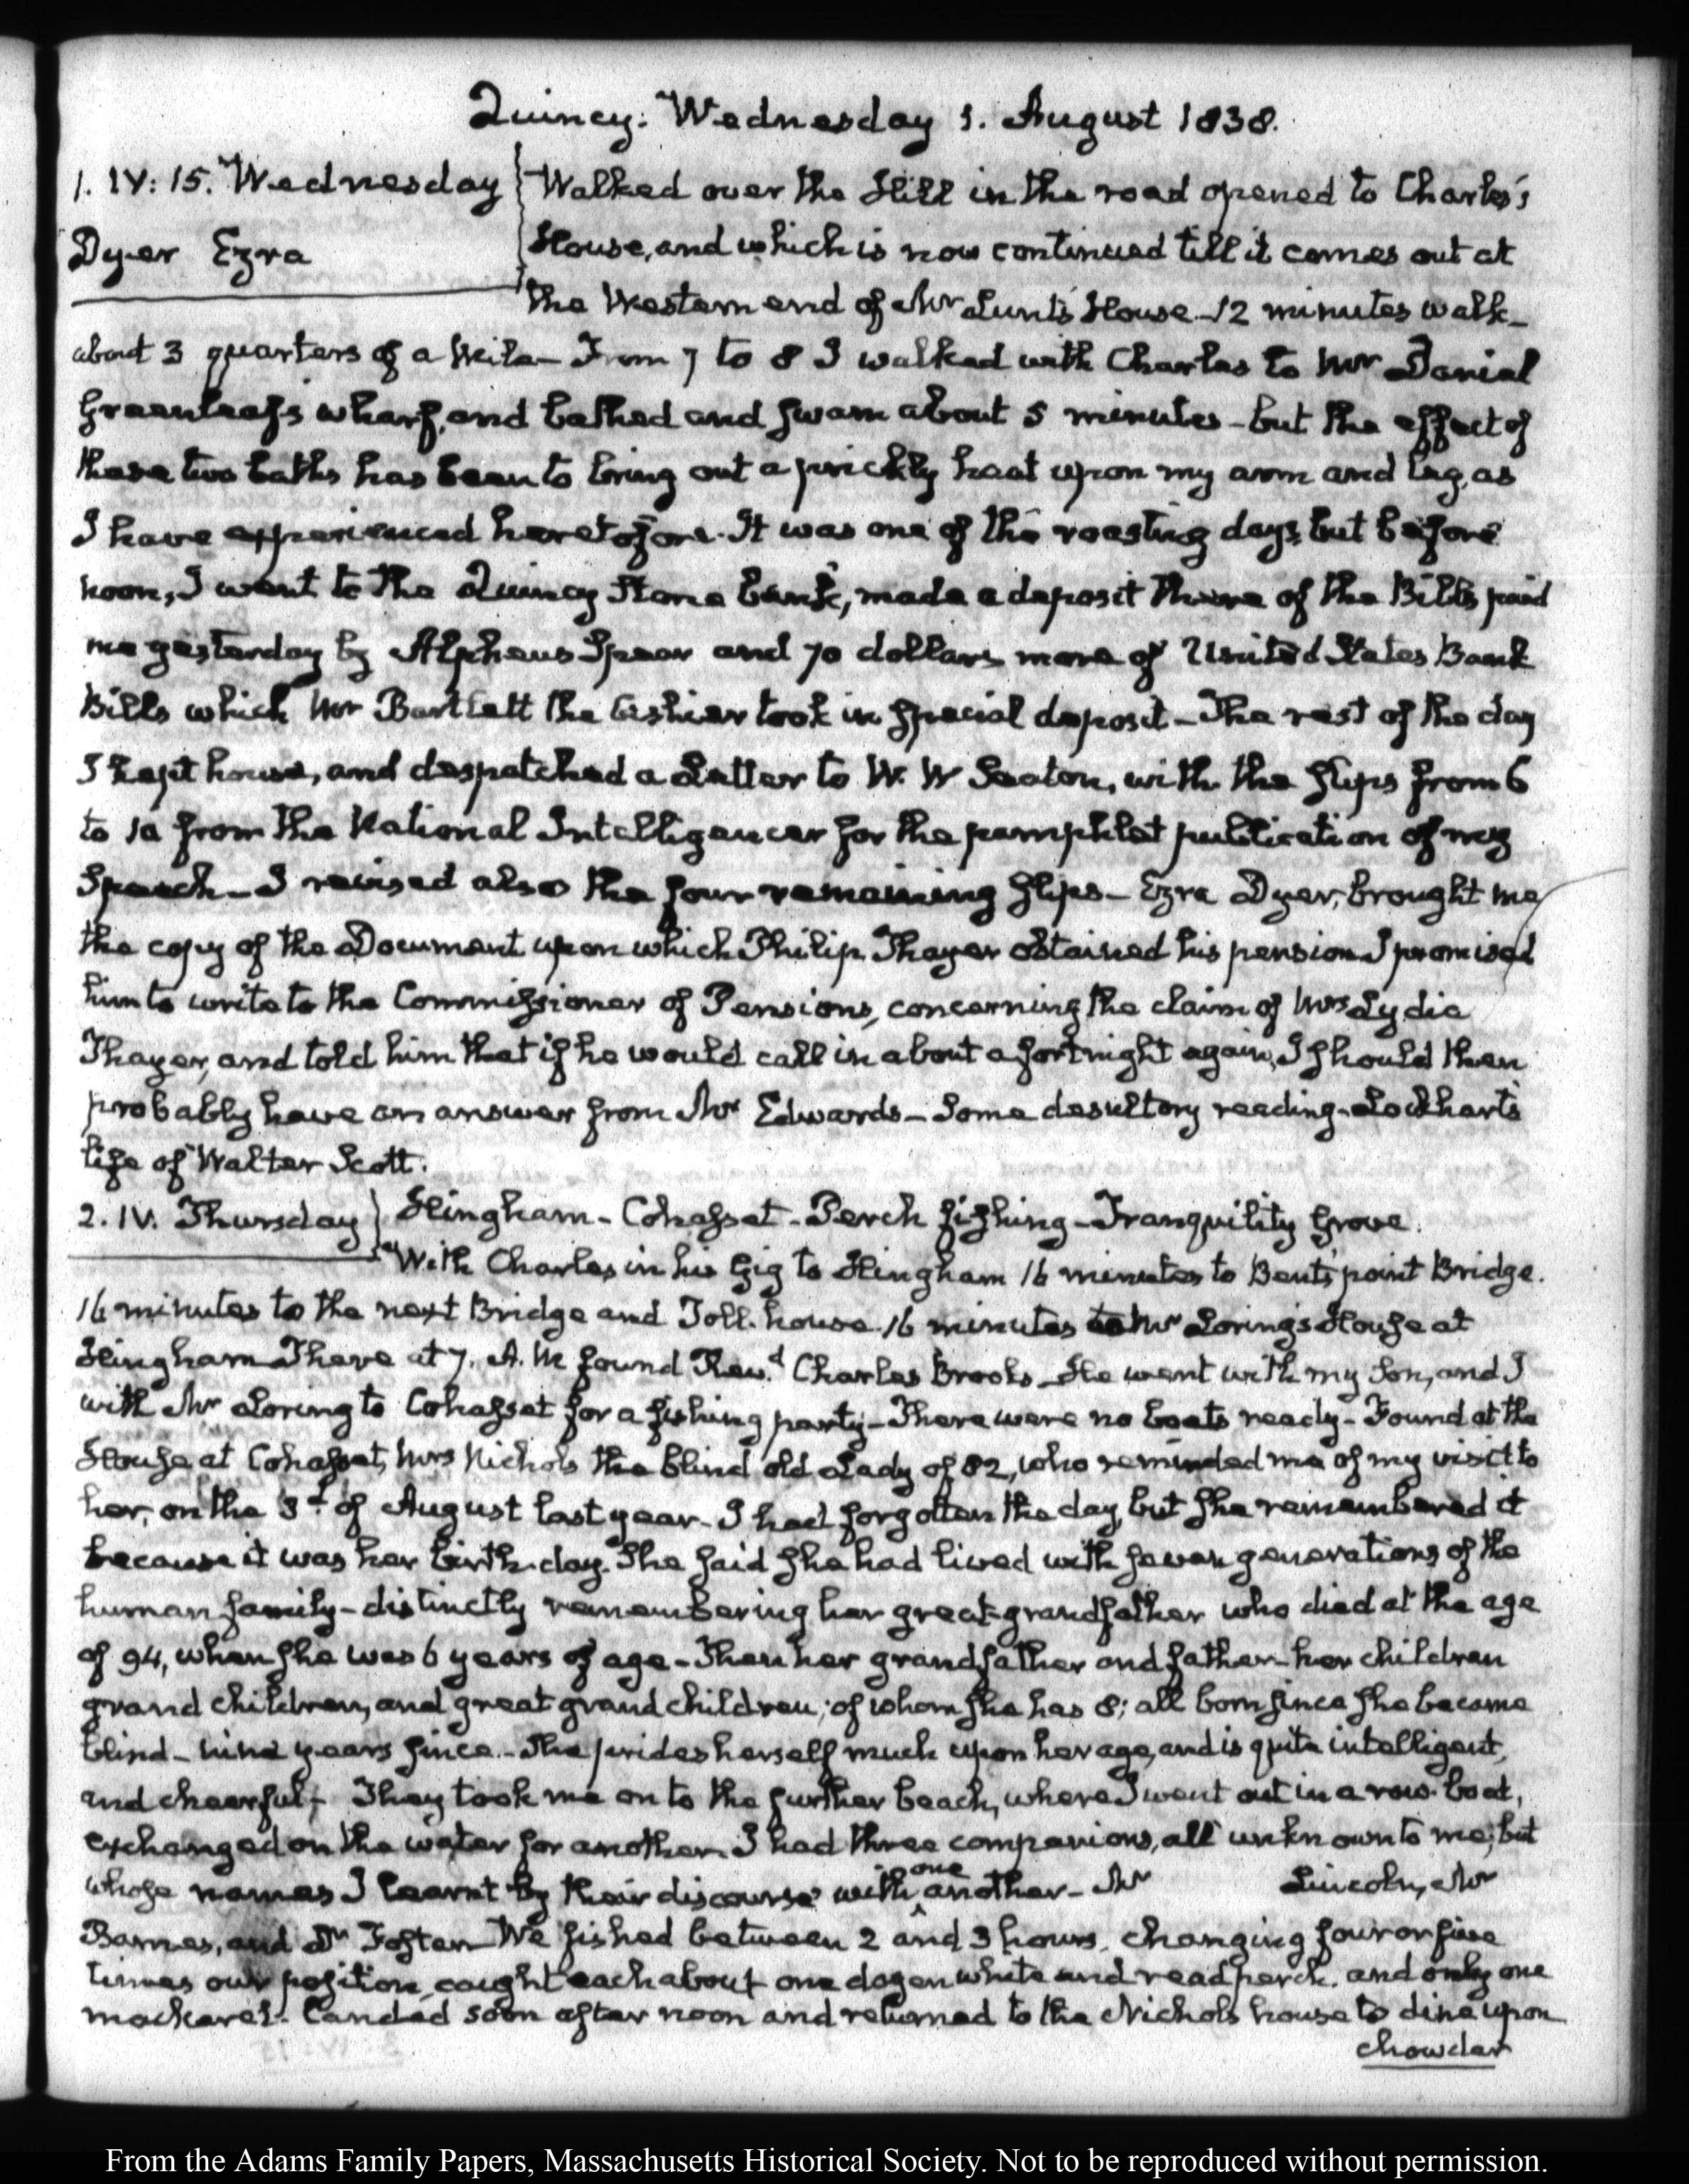 Quincy. Wednesday 1. August 1838.
1. IV: 15. Wednesday
Dyer Ezra
Walked over the Hill in the road opened to Charles's
House, and which is now continued till it comes out at
the Western end of Mr Lunt's House - 12 minutes walk -
about 3 quarters of a Mile - From 7 to 8 I walked with Charles to Mr Daniel
Greenleaf's wharf, and bathed and swam about 5 minutes - but the effect of
these two baths has been to bring out a prickly heat upon my arm and leg, as
I have experienced heretofore. It was one of the roasting days, but before
noon, I went to the Quincy Stone bank, made a deposit there of the Bills paid
me yesterday by Alpheus Spear and 70 dollars more of United States Bank
Bills which Mr Bartlett the Cashier took in special deposit - The rest of the day
I kept house, and despatched a Letter to W. W Seaton, with the slips from 6
to 10 from the National Intelligencer for the pamphlet publication of my
Speech - I revised also the four remaining slips - Ezra Dyer, brought me
the copy of the Document upon which Philip Thayer obtained his pension I promised
him to write to the Commissioner of Pensions, concerning the claim of Mrs Lydia
Thayer, and told him that if he would call in about a fortnight again, I should then
probably have an answer from Mr Edwards - Some desultory reading - Lockhart's
life of Walter Scott.
2. IV. Thursday
Hingham - Cohasset - Perch fishing - Tranquility Grove.
With Charles in his Gig to Hingham 16 minutes to Bent's point Bridge.
16 minutes to the next Bridge and Toll-house. 16 minutes to Mr Loring's House at
Hingham There at 7. A.M found Revd. Charles Brooks - He went with my Son, and I
with Mr Loring to Cohasset for a fishing party - There were no boats ready - Found at the
House at Cohasset, Mrs Nichols the blind old Lady of 82, who reminded me of my visit to
her, on the 3d. of August last year - I had forgotten the day, but she remembered it
because it was her birth-day. She said she had lived with seven generations of the
human family - distinctly remembering her great-grandfather who died at the age
of 94, when she was 6 years of age - Then her grandfather and father - her children
grand children, and great grand children; of whom she has 8; all born since she became
blind - nine years since. - She prides herself much upon her age, and is quite intelligent,
and cheerful - They took me on to the further beach, where I went out in a row-boat,
exchanged on the water for another. I had three companions, all unknown to me; but
whose names I learnt by their discourse with one another - Mr Lincoln, Mr
Barnes, and Dr Foster We fished between 2 and 3 hours, changing four or five
times our position, caught each about one dozen white and read perch, and only one
mackarel. Landed soon after noon and returned to the Nichols house to dine upon
chowder
From the Adams Family Papers, Massachusetts Historical Society. Not to be reproduced without permission.